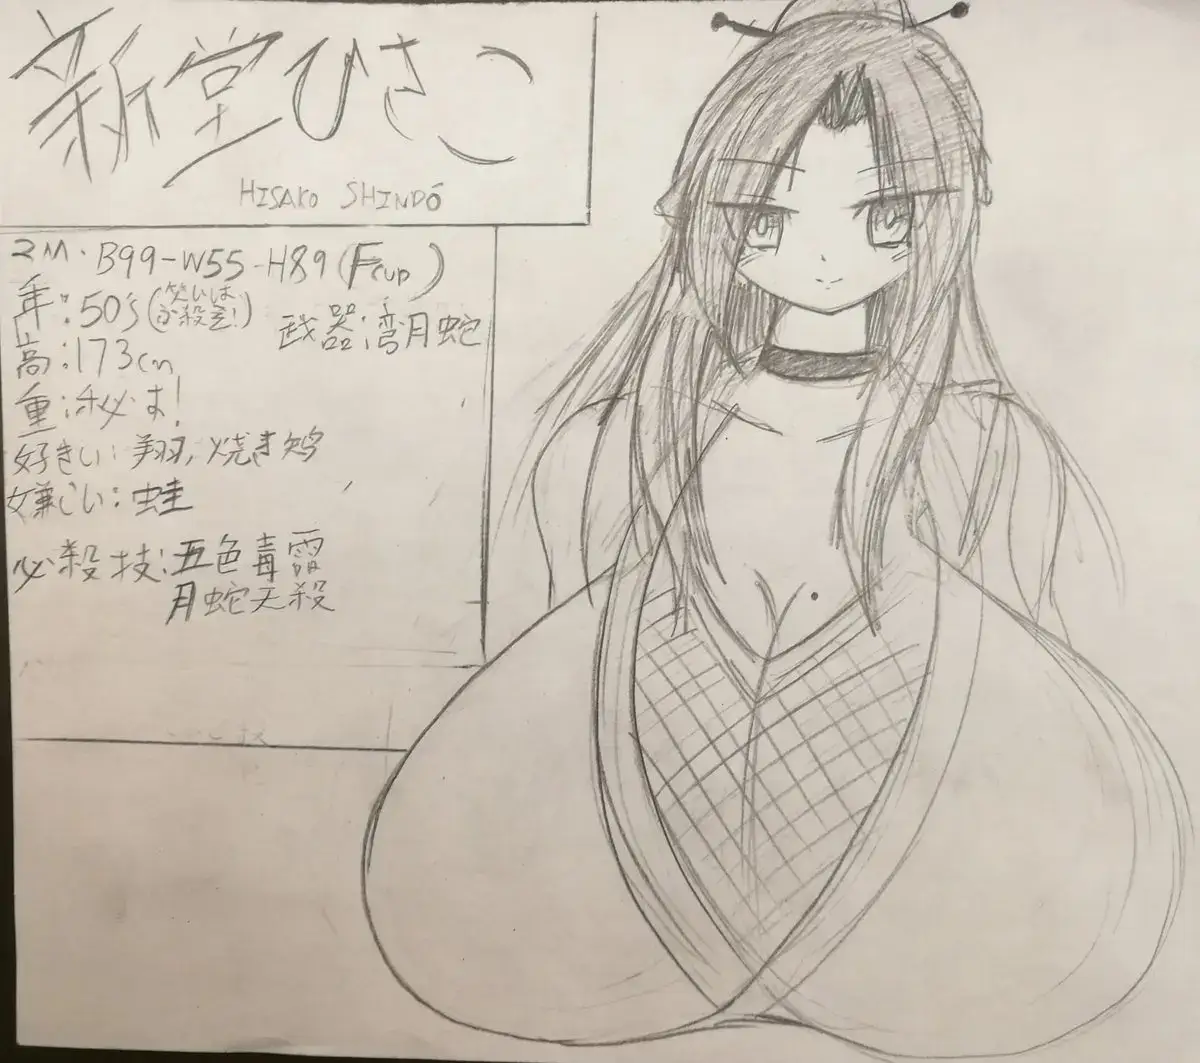 新堂ひさこ
HISAKO SHINDŌ
B99-W55-H89(Fcup)
年:50's(笑いは必殺至!)
武器:弯月蛇
高:173cm
重:秘す!
好きい:翔,焼き鸡
嫌しい:蛙
必殺技:五色毒霜
月蛇天殺